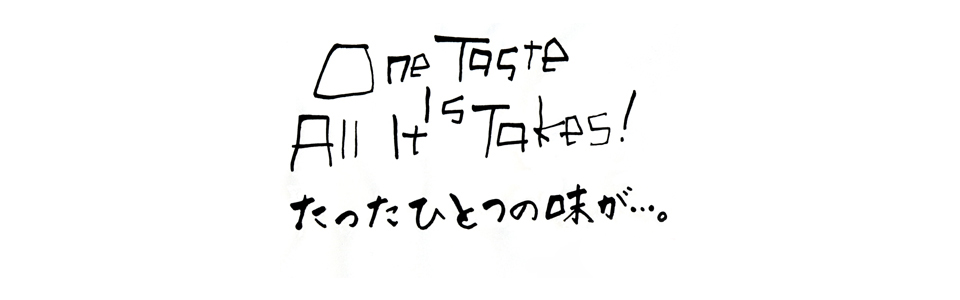 One Taste
All It's Takes!
たったひとつの味が…。